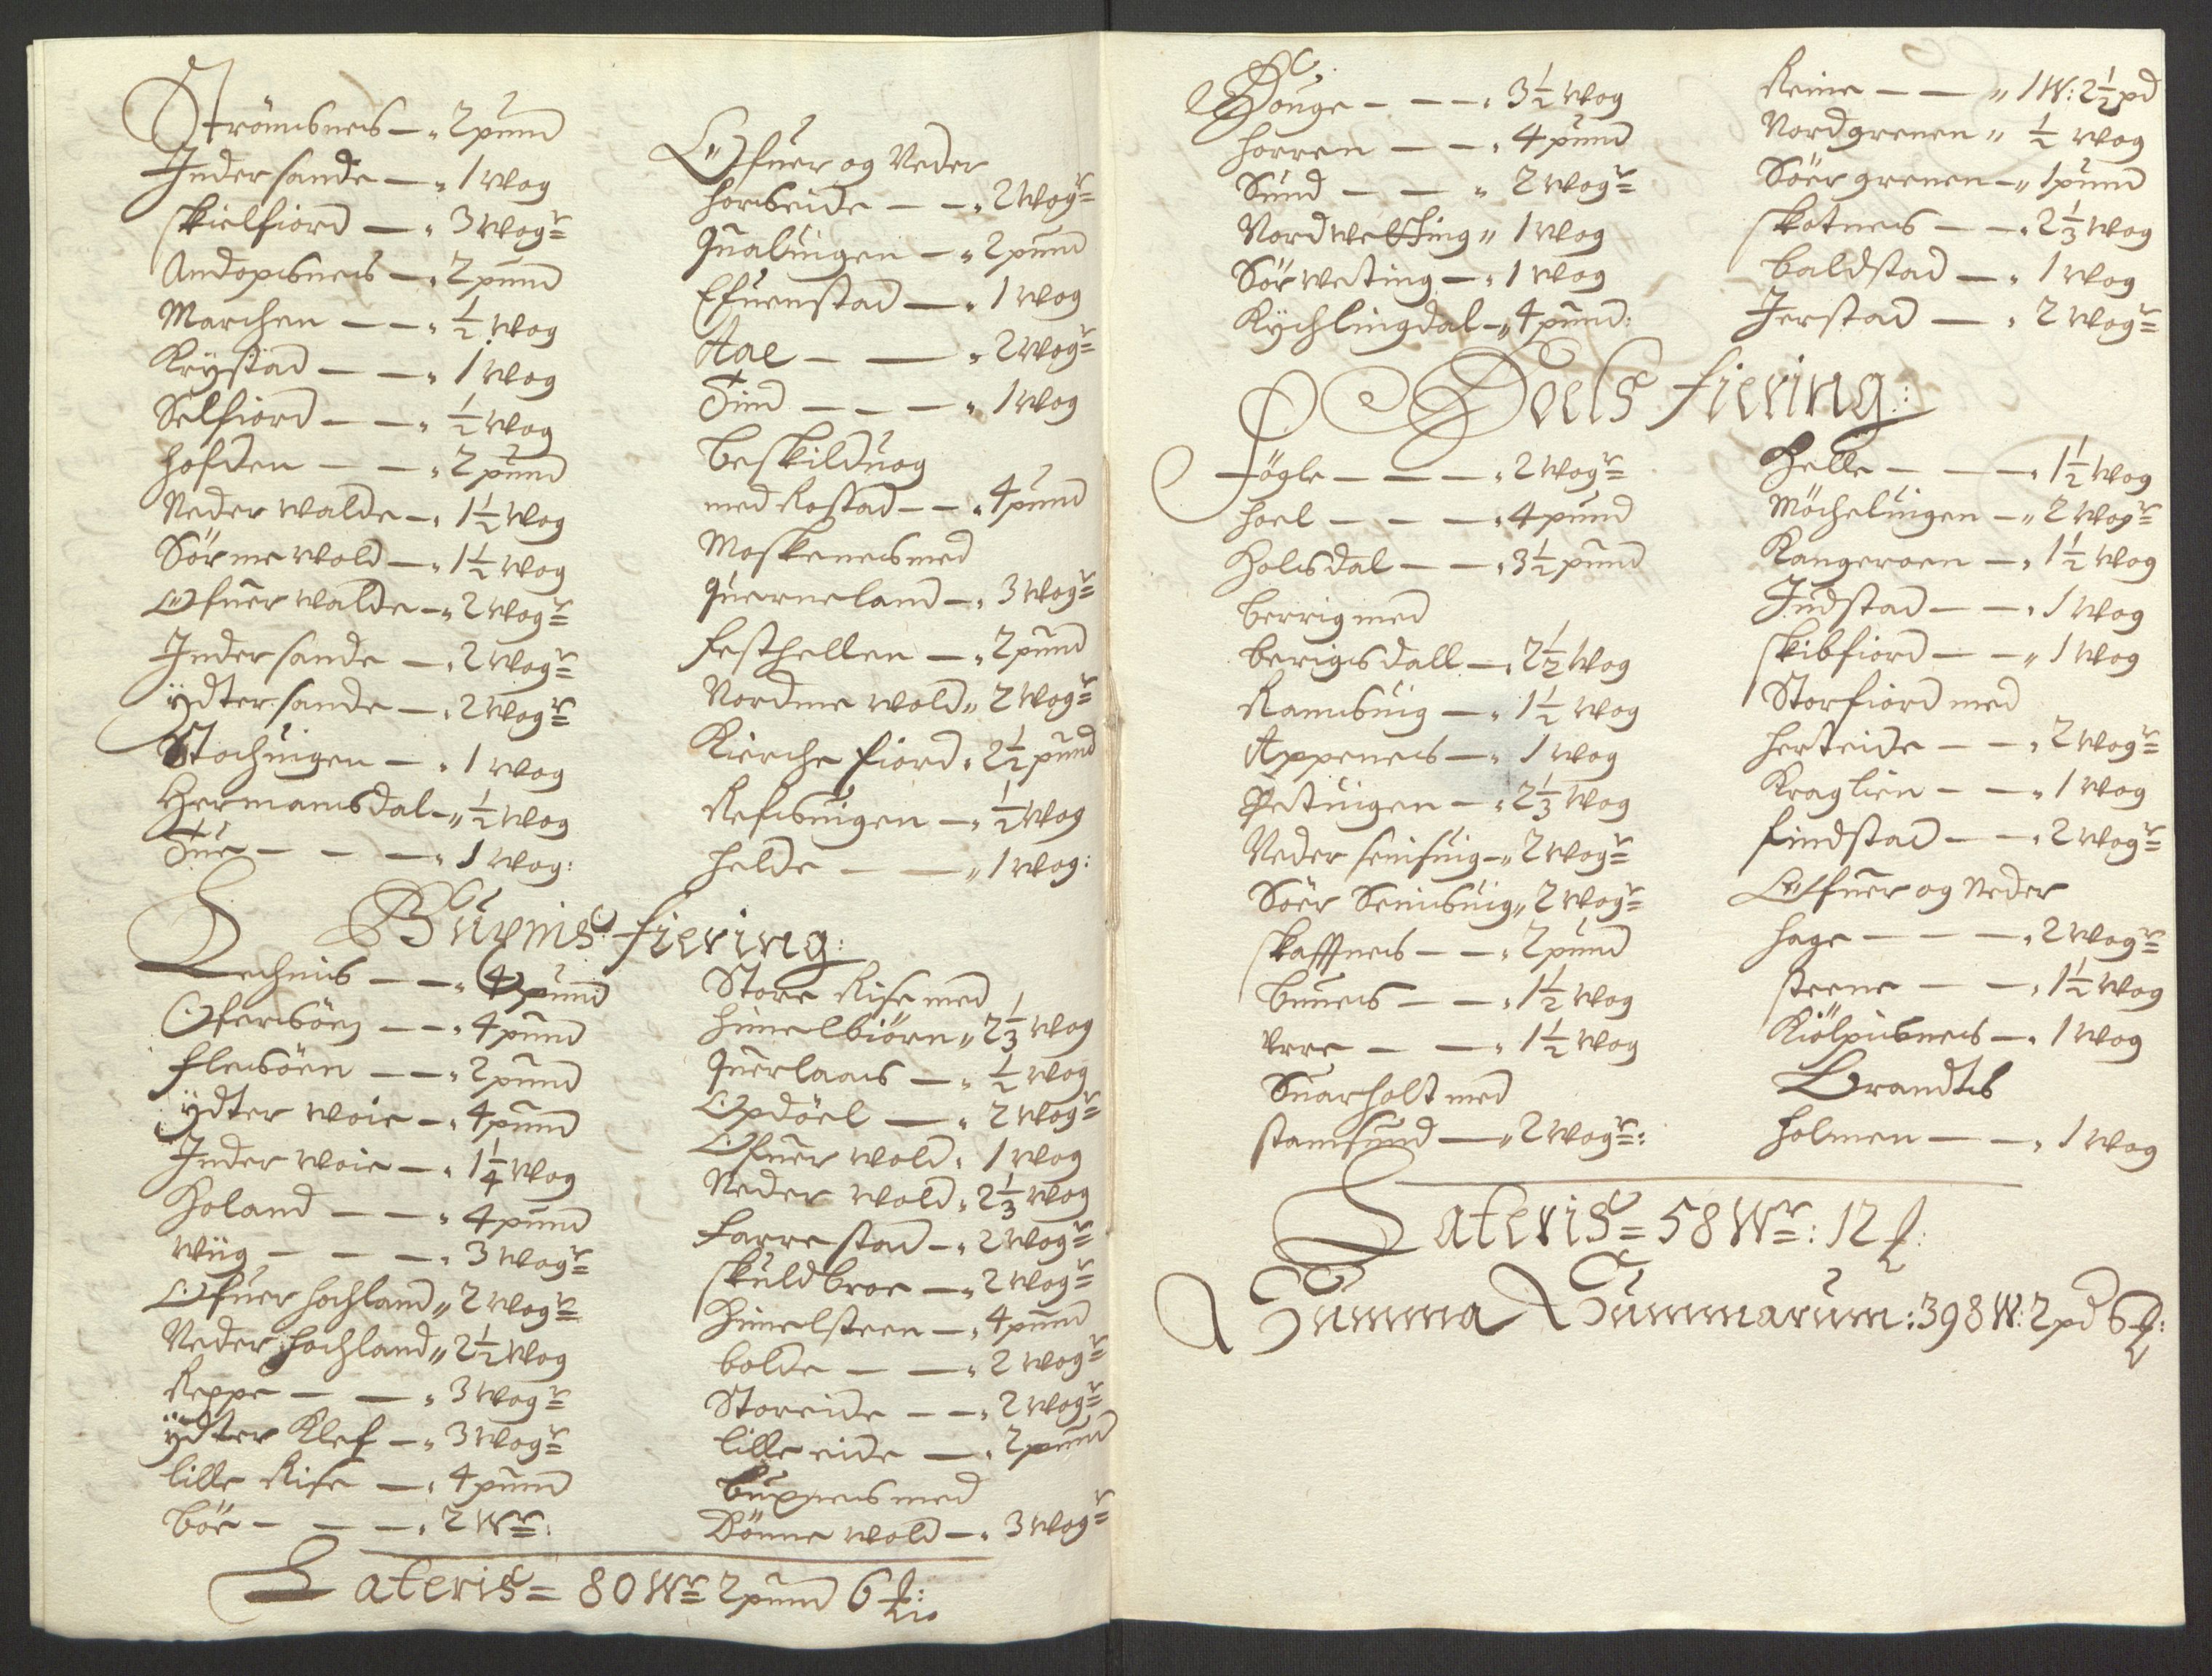 Strömsnes — 2 pund
Inder sande — 1 wog
Skielfiord — 3 wogr
Andopsnes — 2 pund
Marchen — — ½ wog
Krystad — — 1 wog
Selfiord — — ½ wog
Hofden — — 2 pund
Neder walde — 1½ wog
Sör me wold — 1½ wog
Ofuer walde — 2 wogr
Inder sande — 2 wogr
ÿdter sande — 2 wogr
Stochuigen — 1 wog
Hermansdal — ½ wog
Tue — — — 1 wog:
Ofuer og Neder
horseide — — 2 wogr
Qualuigen — 2 pund
Efuenstad — 1 wog
Aae — — 2 wogr
Tind — — — 1 wog
Beskilduog
med Rostad — — 4 pund
Moskenes med
Querneland — 3 wogr
Festhellen — 2 pund
Nordme wold 2 wogr
Kierche fiord 2½ pund
Refsuigen — ½ wog
Helde — — 1 wog:
Buxnis fiering:
Lechnis — — 4 pund
Ofersöen — — 4 pund
Flesöen — — 2 pund
ÿdter woie — 4 pund
Inder woie — 1¼ wog
Holand — — 4 pund
wiig — — — 3 wogr
Ofuer Hochland 2 wogr
Neder Hochland 2½ wog
Reppe — — 3 wogr
ÿdter Klef — 3 wogr
lille Rise — 4 pund
böe — — — 2 Wr:
Store Rise med
Himelbiörn 2⅓ wog
Querlaas — ½ wog
Opdöel — 2 wogr
Ofuer wold 1 wog
Neder wold 2⅓ wog
Farrestad — 2 wogr
Skuldbroe — 2 wogr
Himelsteen — 4 pund
bolde — — 2 wogr
Storeide — — 2 wogr
lille eide — 2 pund
Buxnes med
Dönne wold — 3 wogr
Lateris = 80 Wr 2 pund 6
Houge — — — 3½ wog
Horren — — 4 pund
Sund — — 2 wogr
Nord wetting 1 wog
Sör weting — 1 wog
Kÿchlingdal — 4 pund:
Reine — — 1 W: 2½ pd
Nordgrenen ½ wog
Söer grenen — 1 pund
Skotnes — — 2⅓ wog
baldstad — 1 wog
Jerstad — 2 wogr
Hoels fiering:
Fögle — — — 2 wogr
Hoel — — — 4 pund
Holsdal — — 3½ pund
berrig med
berigsdall — 2½ wog
Ramsuig — 1½ wog
Appenes — 1 wog
Petuigen — 2⅓ wog
Neder senisuig — 2 wogr
Söer Senisuig 2 wogr
Skaffnes — — 2 pund
buunes — — 1½ wog
Vrre — — 1½ wog
Suarholt med
stamsund — 2 wogr:
Helle — — — 1½ wog
Möcheluigen — 2 wogr
Kangeroen — 1½ wog
Judstad — — 1 wog
Skibfiord — — 1 wog
Storfiord med
herteide — — 2 wogr
Kraglien — — 1 wog
Findstad — — 2 wogr
Offuer og Neder
Hage — — — 2 wogr
Steene — — 1½ wog
Kiölpisnes — 1 wog
Brandts
holmen — — 1 wog
Lateris = 58 Wr: 12
Summa Summarum: 398 W: 2 pd 6